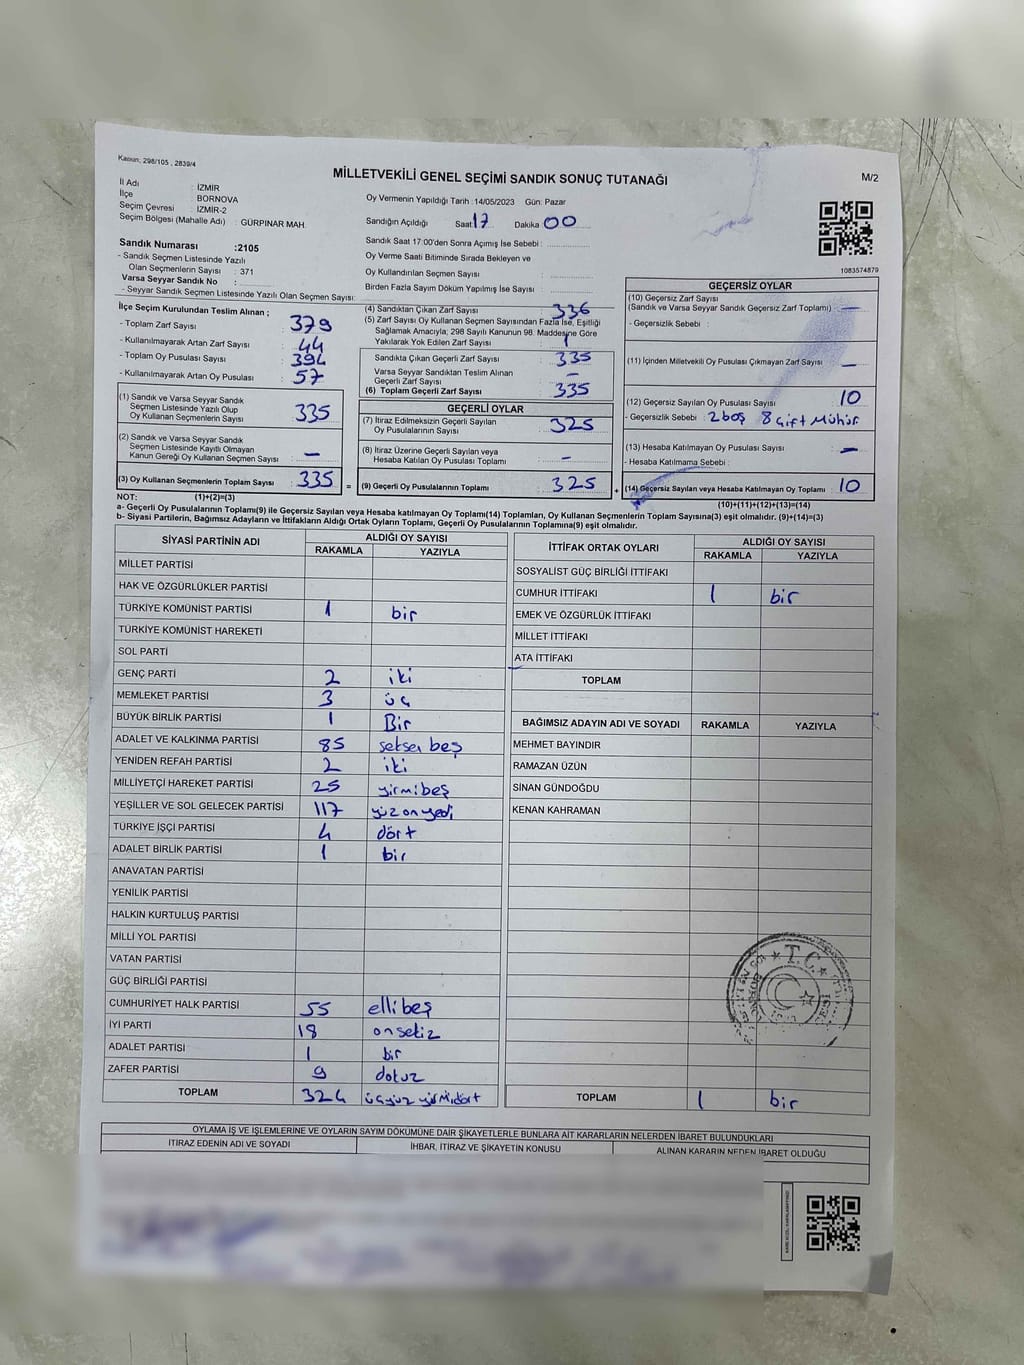 Kanun; 298/105 , 2839/4
MİLLETVEKİLİ GENEL SEÇİMİ SANDIK SONUÇ TUTANAĞI
M/2
İl Adı : İZMİR
İlçe BORNOVA
Seçim Çevresi : İZMİR-2
Seçim Bölgesi (Mahalle Adı) : GÜRPINAR MAH.
Oy Vermenin Yapıldığı Tarih :14/05/2023 Gün: Pazar
Sandığın Açıldığı Saat 17 Dakika 00
Sandık Saat 17:00'den Sonra Açılmış İse Sebebi :
Oy Verme Saati Bitiminde Sırada Bekleyen ve
Oy Kullandırılan Seçmen Sayısı :
Birden Fazla Sayım Döküm Yapılmış İse Sayısı :
1083574879
Sandık Numarası :2105
- Sandık Seçmen Listesinde Yazılı
Olan Seçmenlerin Sayısı : 371
Varsa Seyyar Sandık No :
- Seyyar Sandık Seçmen Listesinde Yazılı Olan Seçmen Sayısı:
İlçe Seçim Kurulundan Teslim Alınan ;
- Toplam Zarf Sayısı : 379
- Kullanılmayarak Artan Zarf Sayısı : 44
- Toplam Oy Pusulası Sayısı : 394
- Kullanılmayarak Artan Oy Pusulası : 57
(1) Sandık ve Varsa Seyyar Sandık
Seçmen Listesinde Yazılı Olup
Oy Kullanan Seçmenlerin Sayısı : 335
(2) Sandık ve Varsa Seyyar Sandık
Seçmen Listesinde Kayıtlı Olmayan
Kanun Gereği Oy Kullanan Seçmen Sayısı : —
(3) Oy Kullanan Seçmenlerin Toplam Sayısı : 335
(4) Sandıktan Çıkan Zarf Sayısı : 336
(5) Zarf Sayısı Oy Kullanan Seçmen Sayısından Fazla İse, Eşitliği
Sağlamak Amacıyla; 298 Sayılı Kanunun 98. Maddesine Göre
Yakılarak Yok Edilen Zarf Sayısı : 1
Sandıkta Çıkan Geçerli Zarf Sayısı : 335
Varsa Seyyar Sandıktan Teslim Alınan
Geçerli Zarf Sayısı : —
(6) Toplam Geçerli Zarf Sayısı : 335
GEÇERLİ OYLAR
(7) İtiraz Edilmeksizin Geçerli Sayılan
Oy Pusulalarının Sayısı : 325
(8) İtiraz Üzerine Geçerli Sayılan veya
Hesaba Katılan Oy Pusulası Toplamı : —
= (9) Geçerli Oy Pusulalarının Toplamı : 325
GEÇERSİZ OYLAR
(10) Geçersiz Zarf Sayısı
(Sandık ve Varsa Seyyar Sandık Geçersiz Zarf Toplamı) : —
- Geçersizlik Sebebi :
(11) İçinden Milletvekili Oy Pusulası Çıkmayan Zarf Sayısı : —
(12) Geçersiz Sayılan Oy Pusulası Sayısı : 10
- Geçersizlik Sebebi : 2 boş 8 Çift Mühür
(13) Hesaba Katılmayan Oy Pusulası Sayısı : —
- Hesaba Katılmama Sebebi :
+ (14) Geçersiz Sayılan veya Hesaba Katılmayan Oy Toplamı : 10
NOT: (1)+(2)=(3) (10)+(11)+(12)+(13)=(14)
a- Geçerli Oy Pusulalarının Toplamı(9) ile Geçersiz Sayılan veya Hesaba Katılmayan Oy Toplamı(14) Toplamları, Oy Kullanan Seçmenlerin Toplam Sayısına(3) eşit olmalıdır. (9)+(14)=(3)
b- Siyasi Partilerin, Bağımsız Adayların ve İttifakların Aldığı Ortak Oyların Toplamı, Geçerli Oy Pusulalarının Toplamına(9) eşit olmalıdır.
SİYASİ PARTİNİN ADI ALDIĞI OY SAYISI
RAKAMLA YAZIYLA
MİLLET PARTİSİ
HAK VE ÖZGÜRLÜKLER PARTİSİ
TÜRKİYE KOMÜNİST PARTİSİ 1 bir
TÜRKİYE KOMÜNİST HAREKETİ
SOL PARTİ
GENÇ PARTİ 2 iki
MEMLEKET PARTİSİ 3 üç
BÜYÜK BİRLİK PARTİSİ 1 Bir
ADALET VE KALKINMA PARTİSİ 85 seksen beş
YENİDEN REFAH PARTİSİ 2 iki
MİLLİYETÇİ HAREKET PARTİSİ 25 yirmibeş
YEŞİLLER VE SOL GELECEK PARTİSİ 117 yüz on yedi
TÜRKİYE İŞÇİ PARTİSİ 4 dört
ADALET BİRLİK PARTİSİ 1 bir
ANAVATAN PARTİSİ
YENİLİK PARTİSİ
HALKIN KURTULUŞ PARTİSİ
MİLLİ YOL PARTİSİ
VATAN PARTİSİ
GÜÇ BİRLİĞİ PARTİSİ
CUMHURİYET HALK PARTİSİ 55 elli beş
İYİ PARTİ 18 on sekiz
ADALET PARTİSİ 1 bir
ZAFER PARTİSİ 9 dokuz
TOPLAM 324 üçyüz yirmidört
İTTİFAK ORTAK OYLARI ALDIĞI OY SAYISI
RAKAMLA YAZIYLA
SOSYALİST GÜÇ BİRLİĞİ İTTİFAKI
CUMHUR İTTİFAKI 1 bir
EMEK VE ÖZGÜRLÜK İTTİFAKI
MİLLET İTTİFAKI
ATA İTTİFAKI
TOPLAM
BAĞIMSIZ ADAYIN ADI VE SOYADI RAKAMLA YAZIYLA
MEHMET BAYINDIR
RAMAZAN ÜZÜN
SİNAN GÜNDOĞDU
KENAN KAHRAMAN
T.C.
TOPLAM 1 bir
OYLAMA İŞ VE İŞLEMLERİNE VE OYLARIN SAYIM DÖKÜMÜNE DAİR ŞİKAYETLERLE BUNLARA AİT KARARLARIN NELERDEN İBARET BULUNDUKLARI
İTİRAZ EDENİN ADI VE SOYADI İHBAR, İTİRAZ VE ŞİKAYETİN KONUSU ALINAN KARARIN NEDEN İBARET OLDUĞU